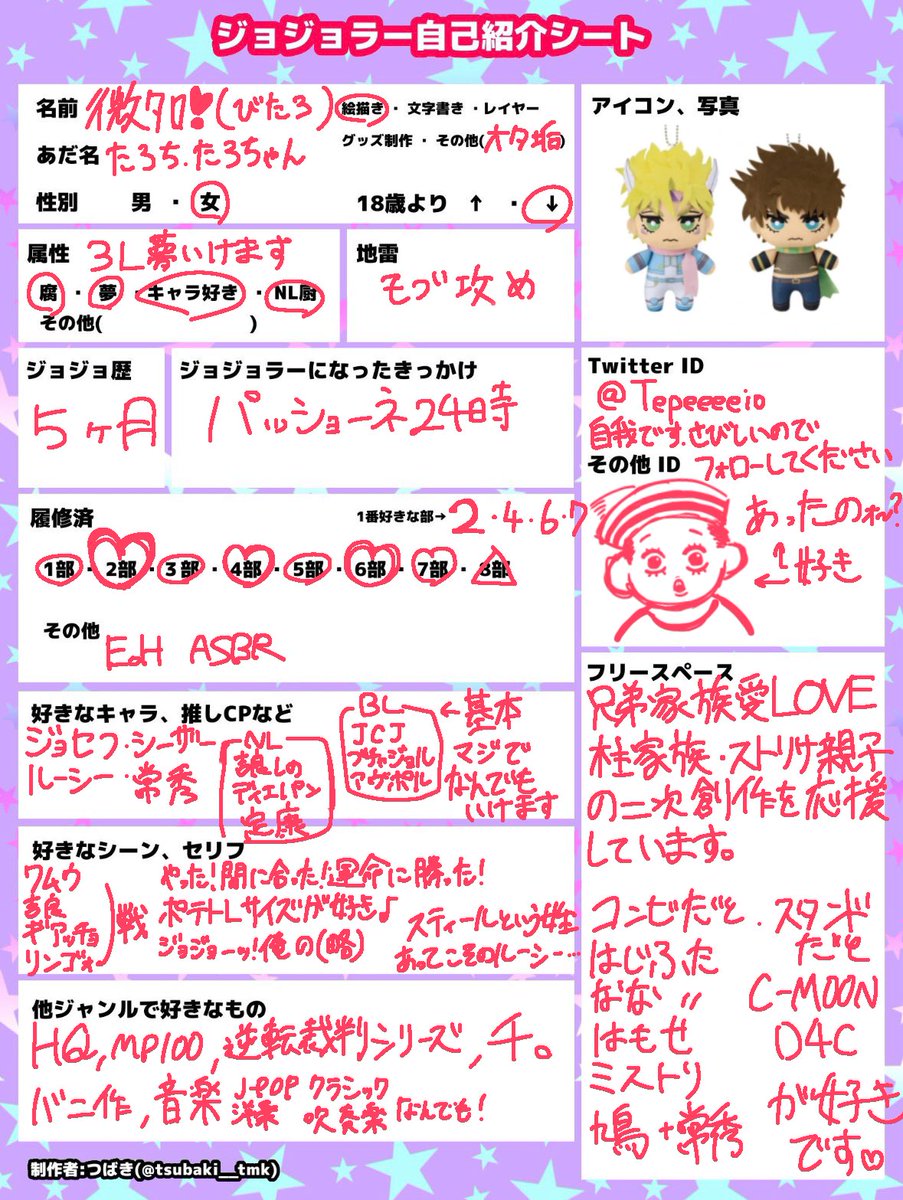 ジョジョラー自己紹介シート
名前 微タロ!(びたろ)
絵描き・文字書き・レイヤー
グッズ制作・その他(オタ垢)
あだ名 たろち.たろちゃん
性別 男・女
18歳より ↑・↓
アイコン、写真
属性 3L夢いけます
腐・夢・キャラ好き・NL厨
その他( )
地雷
モブ攻め
ジョジョ歴
5ヶ月
ジョジョラーになったきっかけ
パッショーネ24時
Twitter ID
@Tepeeeeio
自我です.さびしいので
フォローしてください
その他 ID
あったのォ〜?
←↑好き
履修済
1番好きな部→2・4・6・7
1部・2部・3部・4部・5部・6部・7部・8部
その他 EoH ASBR
好きなキャラ、推しCPなど
ジョセフ・シーザー
ルーシー・常秀
NL
譲しの
ディエパン
定康
BL
JCJ
ブチャジョル
アヴポル
←基本
マジで
なんでも
いけます
好きなシーン、セリフ
ワムウ
吉良
ギアッチョ
リンゴォ
戦
やった!間に合った!運命に勝った!
ポテトLサイズが好き♪
ジョジョーッ!俺の(略)
スティールという姓
あってこそのルーシー…
他ジャンルで好きなもの
HQ,MP100,逆転裁判シリーズ,チ。
バニ作,音楽 J-POP クラシック
洋楽 吹奏楽 なんでも!
フリースペース
兄弟家族愛LOVE
柱家族・ストリサ親子
の二次創作を応援
しています。
コンビだと
はじふた
なな〃
はもせ
ミストリ
鳩+常秀
・スタンド
だと
C-MOON
D4C
が好き
です♡
制作者:つばき(@tsubaki__tmk)